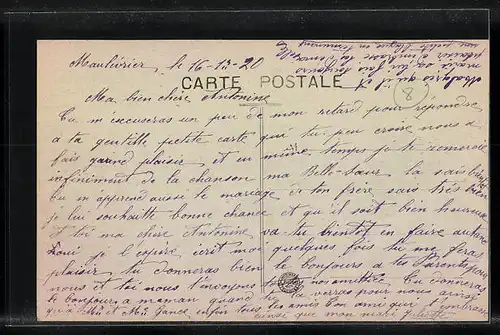 Maulévrier, le 16-12-20
CARTE POSTALE
8
Ma bien chère Antonine
Tu m'excuseras un peu de mon retard pour reponse
a ta gentille petite carte qui tu peu croire nous a
fais grand plaisir et en même temps je te remercie
infiniment de la chanson ma Belle-Sœur la sais bien
tu m'apprend aussi le mariage de ton frère sais très bien
je lui souhaitte bonne chance et qu'il soit bien heureux
et toi ma chère Antonine va tu bientôt en faire autant
je l'espère écrit moi quelques fois tu me feras
plaisir tu donneras bien le bonjours a tes Parents pour
nous et toi nous t'envoyons Tu donneras
le bonjours a maman quand tu la verras pour nous ainsi
qu'a Mr et Me enfin tous tes amis Ton amie qui t'embrasse
ainsi que mon mari Juliette